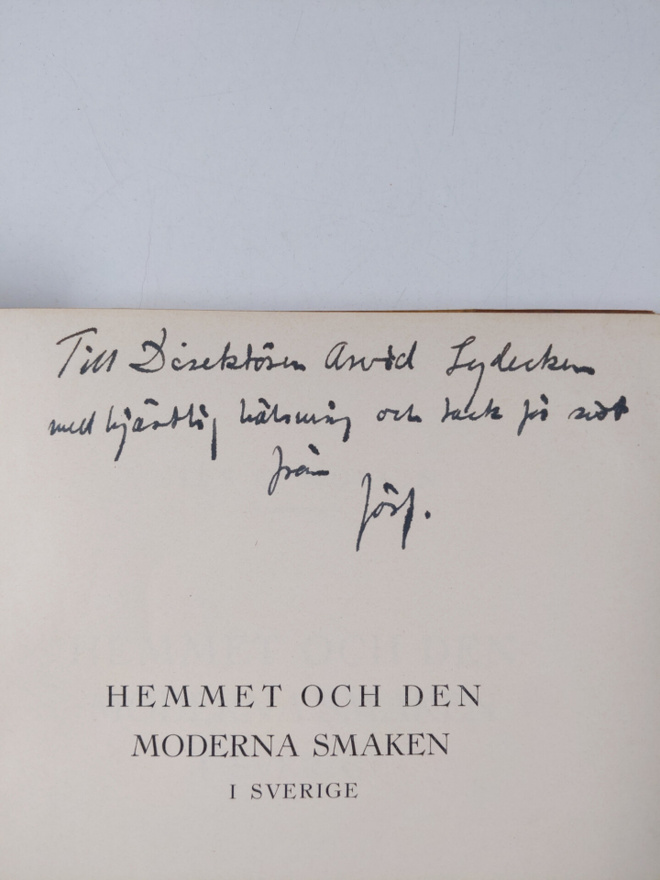 Till Direktören Arvid Lydecken
med hjärtlig hälsning och tack för sist
från
förf.
HEMMET OCH DEN
MODERNA SMAKEN
I SVERIGE